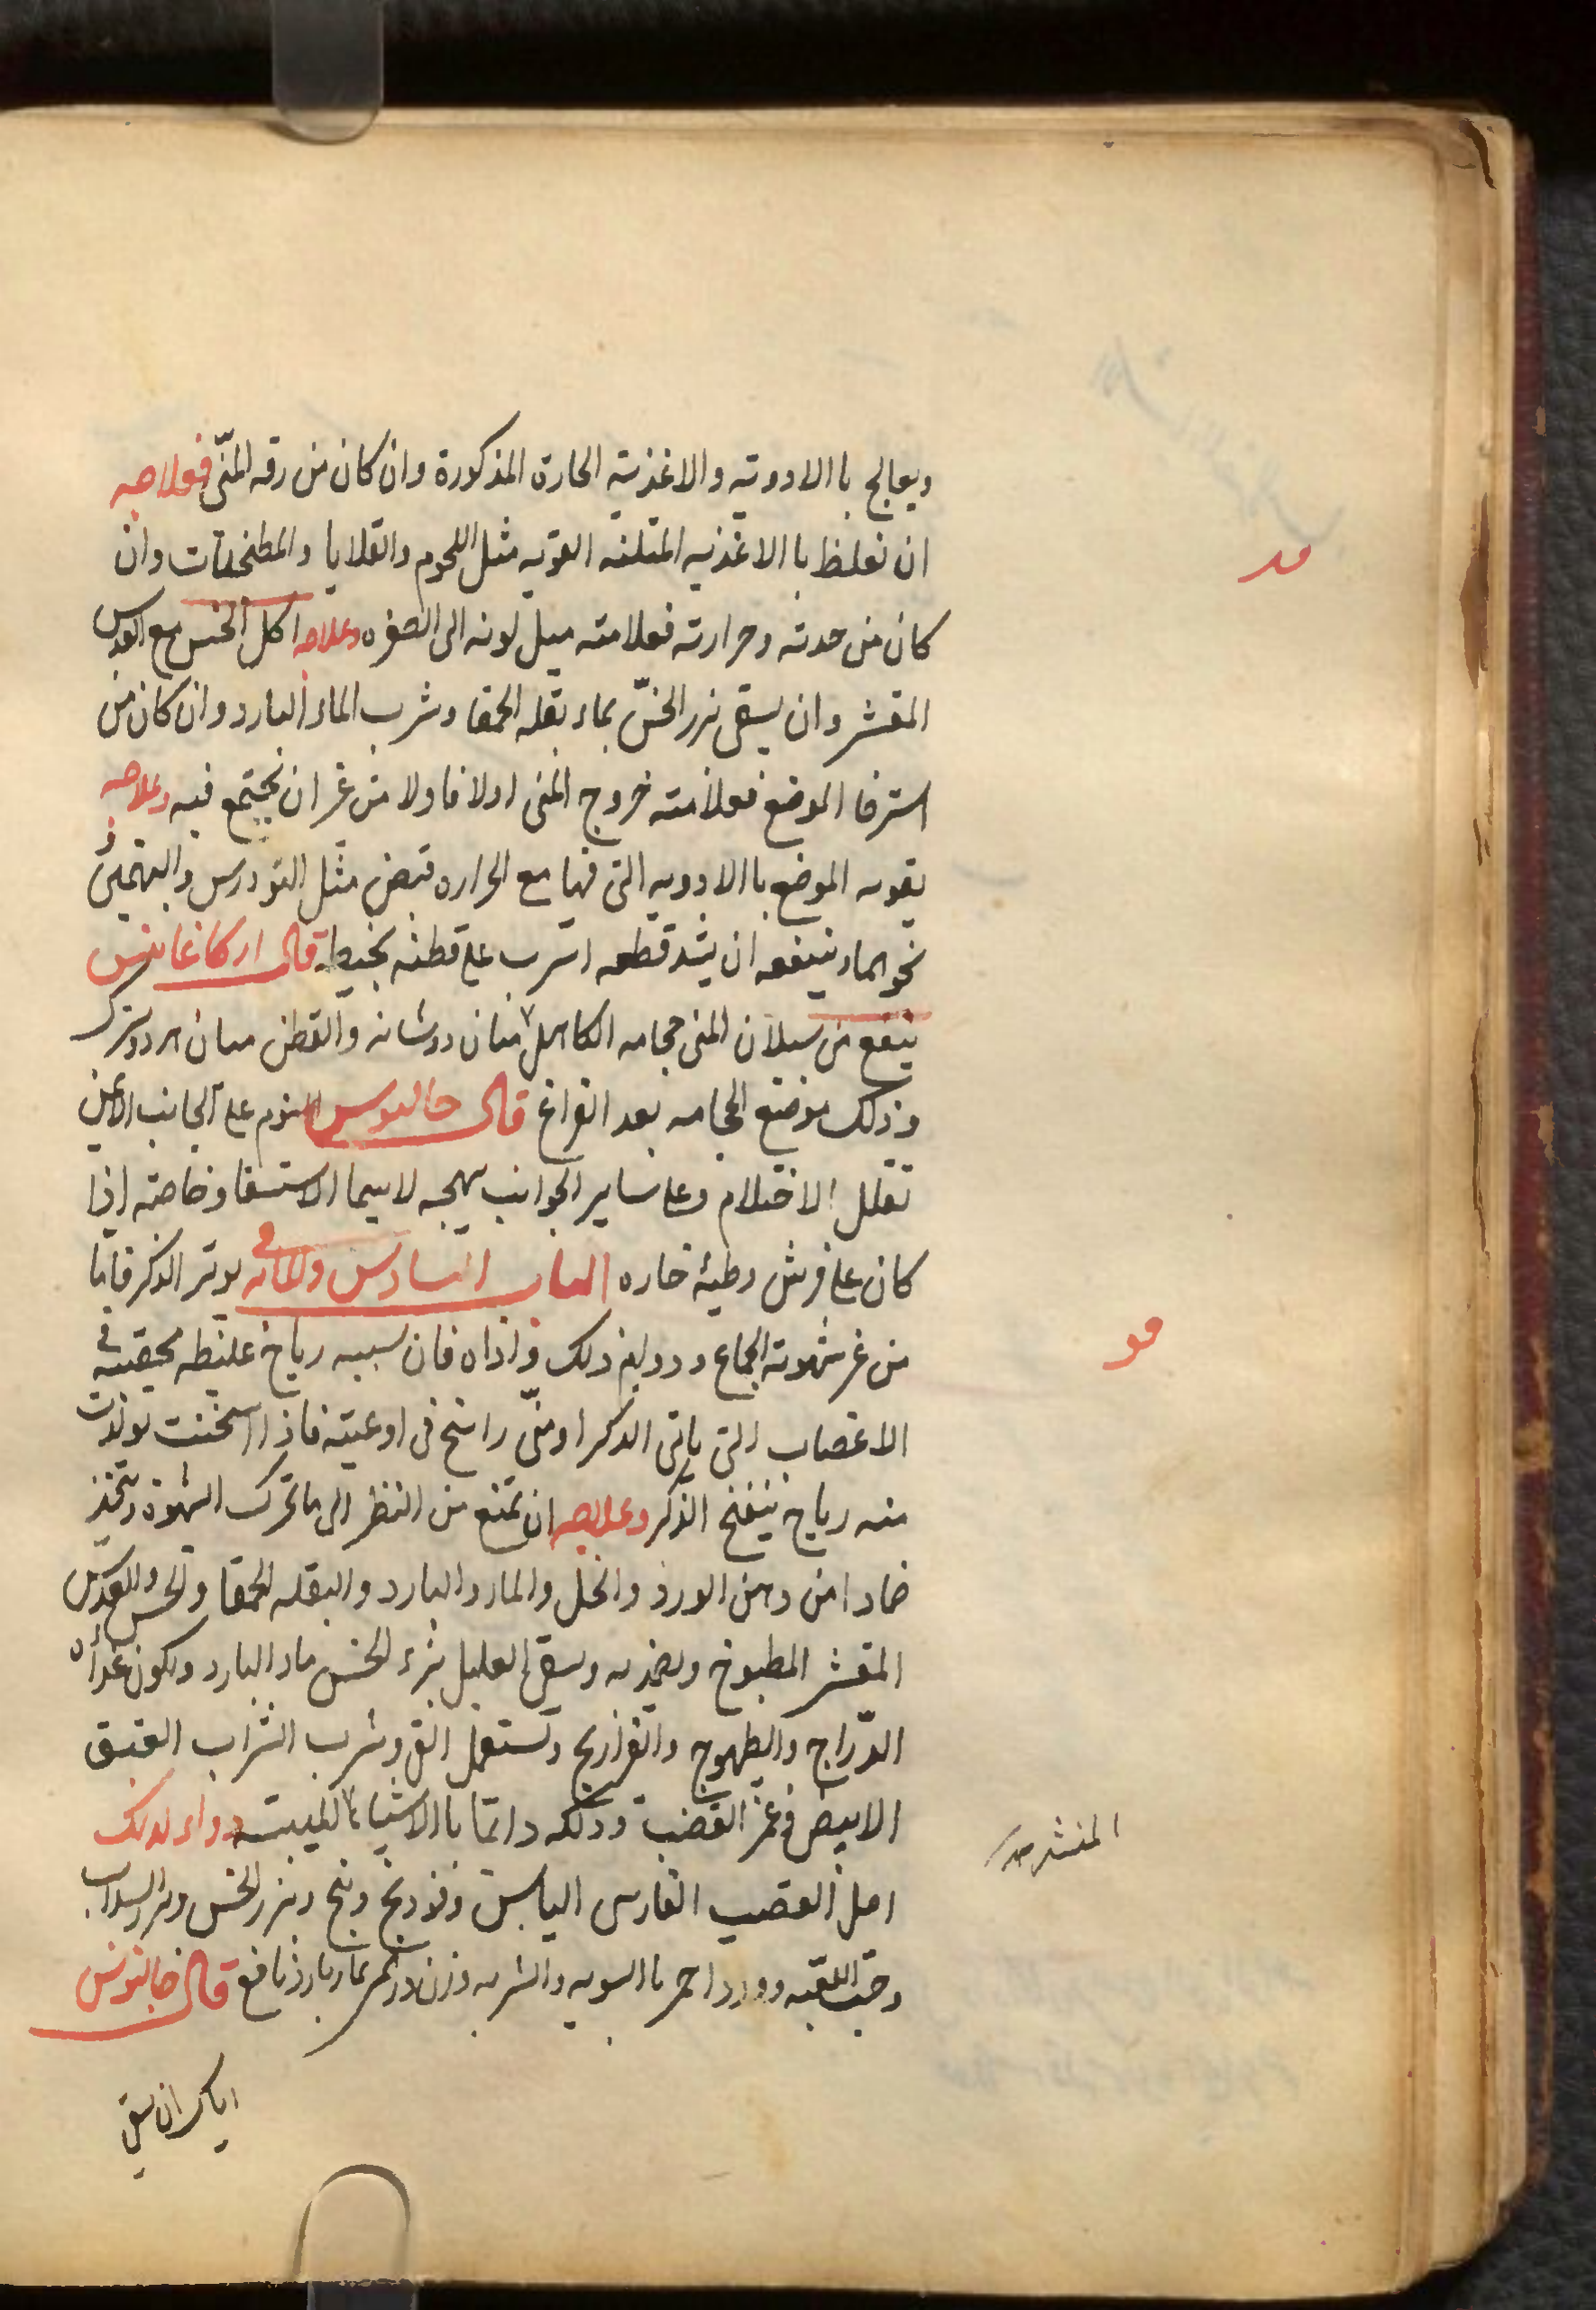 ويعالج با الادويه والاغذيه الحارة المذكورة وان كان من رقه المنّى فعلاجه
ان تغلظ با الاغذيه القويه مثل اللحوم والقلايا والمطنجنات وان
كان من حدته وحرارته فعلامته ميل لونه الى الصفره وعلاجه اكل الخس مع العدس
المقشر وان يسقى بزر الخسّ بماء بقله الحمقا وشرب الماء البارد وان كان من
استرخا الموضع فعلامته خروج المنى اولا فاولا من غير ان يجتمع فيه وعلاجه
تقويه الموضع با الادويه التى فيها مع الحراره قبض مثل
ينفعه ان يشد قطعه اسرب على قطنه بخيط قال اركاغانيس
ينفع من سيلان المنى حجامه الكاهل
وذلك موضع الحجامه بعد الفراغ قال جالينوس النوم على الجانب الأيمن
تقلل الاحتلام وعلى ساير الجوانب يهيجه لاسيما الاستلقا وخاصته اذا
كان على فرش وطيئه حاره الباب السادس والمائه فى توتر الذكر قايما
من غير شهوته الجماع ودوام ذلك واذاه فان سببه رياح غليظه محتقنه فى
الاعصاب التى ياتى الذكر او منّى راسخ فى اوعيته فاذا اسخنت تولدت
منه رياح ينفخ الذكر وعلاجه ان تمنع من النظر الى ما تحرك الشهوة ويتخذ
ضمادا من دهن الورد والخل والماء البارد والبقله الحمقا والخس والعدس
المقشر المطبوخ ويضمد به ويسقى العليل بزر الخس بماء البارد ويكون غذاه
الدّراج والطهوج والفراريج وتستعمل القى وشرب الشراب العتيق
الابيض فى غمز القضيب ودلكه دائما با الاشياء المليينه دواء لذلك
اصل القصب الفارسى اليابس وفودنج وبنج وبزر الخس وبزر السداب
وحب الفقد وورد احمر با السويه والشربه وزن درهم بماء بارد نافع قال جالينوس
اياك ان يسقى
مه
مو